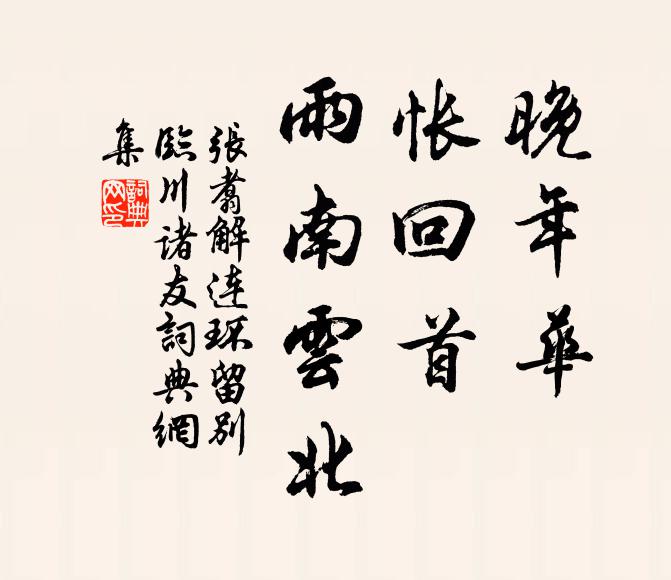 晚年華
悵回首
雨南雲北
張翥解連環留別
臨川諸友詞典網
集
詞典
网印